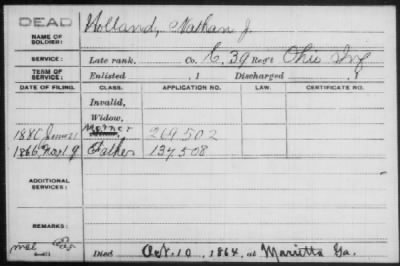 DEAD
Holland, Nathan J.
NAME OF SOLDIER:
SERVICE: Late rank, Co. E, 39 Reg't Ohio Inf
TERM OF SERVICE: Enlisted , 1 Discharged , 1
DATE OF FILING. CLASS. APPLICATION NO. LAW. CERTIFICATE NO.
Invalid,
Widow,
1880 June 21 Mother 269502
1866, Nov. 9 Father 137508
ADDITIONAL SERVICES:
REMARKS:
Died Oct. 10, 1864, at Marietta Ga.